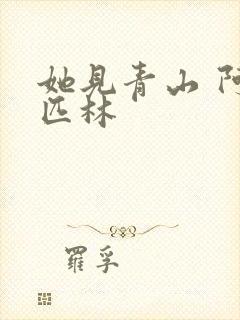 她见青山 阿
匹林
羅孚